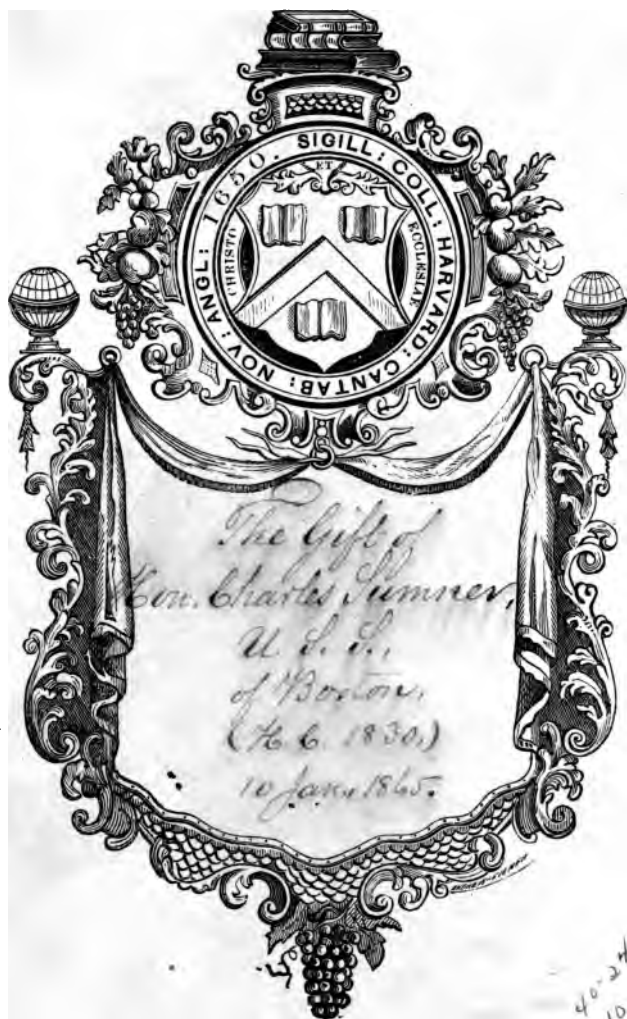 SIGILL: COLL: HARVARD: CANTAB: NOV: ANGL: 1650.
CHRISTO
ET
ECCLESIAE
The Gift of
Hon. Charles Sumner,
U. S. S.,
of Boston,
(H. C. 1830.)
10 Jan. 1865.
40-24
10